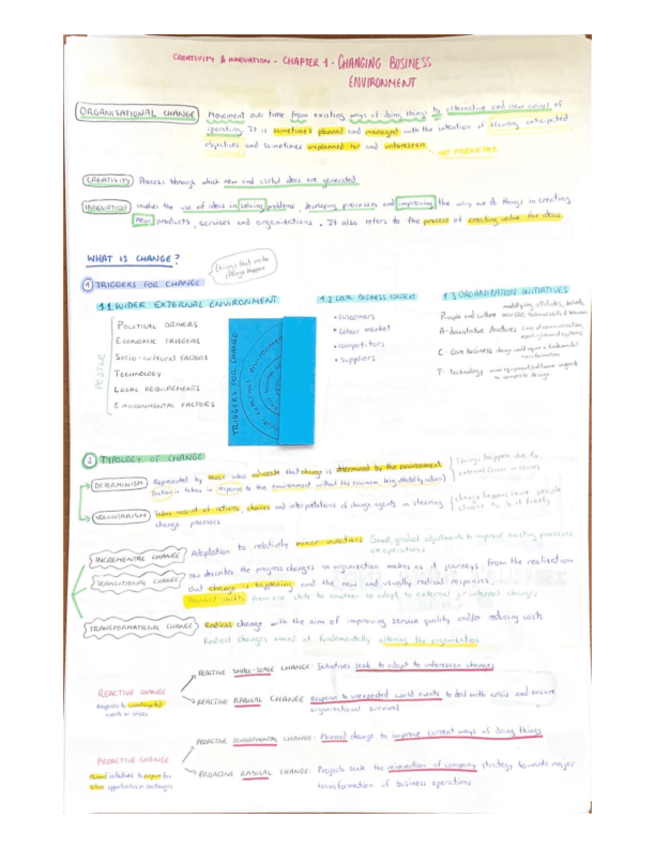 CREATIVITY & INNOVATION - CHAPTER 1 - CHANGING BUSINESS
ENVIRONMENT
ORGANISATIONAL CHANGE Movement over time from existing ways of doing things to alternative and new ways of
operating. It is sometimes planned and managed with the intention of securing anticipated
objectives and sometimes unplanned for and unforeseen
NOT PREDICTED
CREATIVITY Process through which new and useful ideas are generated
INNOVATION Involves the use of ideas in solving problems, developing processes and improving the way we do things in creating
new products, services and organisations. It also refers to the process of creating value for ideas.
WHAT IS CHANGE?
things that make
change happen
1 TRIGGERS FOR CHANGE
1.1 WIDER EXTERNAL ENVIRONMENT
PESTLE
POLITICAL DRIVERS
ECONOMIC TRIGGERS
SOCIO-CULTURAL FACTORS
TECHNOLOGY
LEGAL REQUIREMENTS
ENVIRONMENTAL FACTORS
TRIGGERS FOR CHANGE
1.2 LOCAL BUSINESS CONTEXT
• customers
• Labour market
• competitors
• suppliers
1.3 ORGANISATION INITIATIVES
People and culture modifying attitudes, beliefs,
technical skills & behaviours
A- dministrative structures lines of communication,
reporting reward systems
C- Core business design would require a fundamental
transformation
T- Technology new equipment/software
to complete design
2 TYPOLOGY OF CHANGE
DETERMINISM Represented by those who advocate that change is determined by the environment
(action is taken in response to the environment without the environm. being affected by action)
Things happen due to
external forces or causes
VOLUNTARISM Takes account of actions, choices and interpretations of change agents in steering
change processes
change happens cause people
choose to do it freely
INCREMENTAL CHANGE Adaptation to relatively minor variations Small, gradual adjustments to improve existing processes
or operations
TRANSITIONAL CHANGE describes the progress changes an organisation makes as it journeys from the realisation
that change is happening and the new and usually radical responses.
Planned shifts from one state to another to adapt to external or internal changes
TRANSFORMATIONAL CHANGE Radical change with the aim of improving service quality and/or reducing costs
Radical changes aimed at fundamentally altering the organisation
REACTIVE CHANGE
Response to unanticipated
events or crises
REACTIVE SMALL-SCALE CHANGE: Initiatives seek to adapt to unforeseen changes
REACTIVE RADICAL CHANGE Response to unexpected world events to deal with crisis and ensure
organisational survival
PROACTIVE CHANGE
Planned initiatives to prepare for
future opportunities or challenges
PROACTIVE DEVELOPMENTAL CHANGE: Planned change to improve current ways of doing things
PROACTIVE RADICAL CHANGE: Projects seek the reinvention of company strategy towards major
transformation of business operations